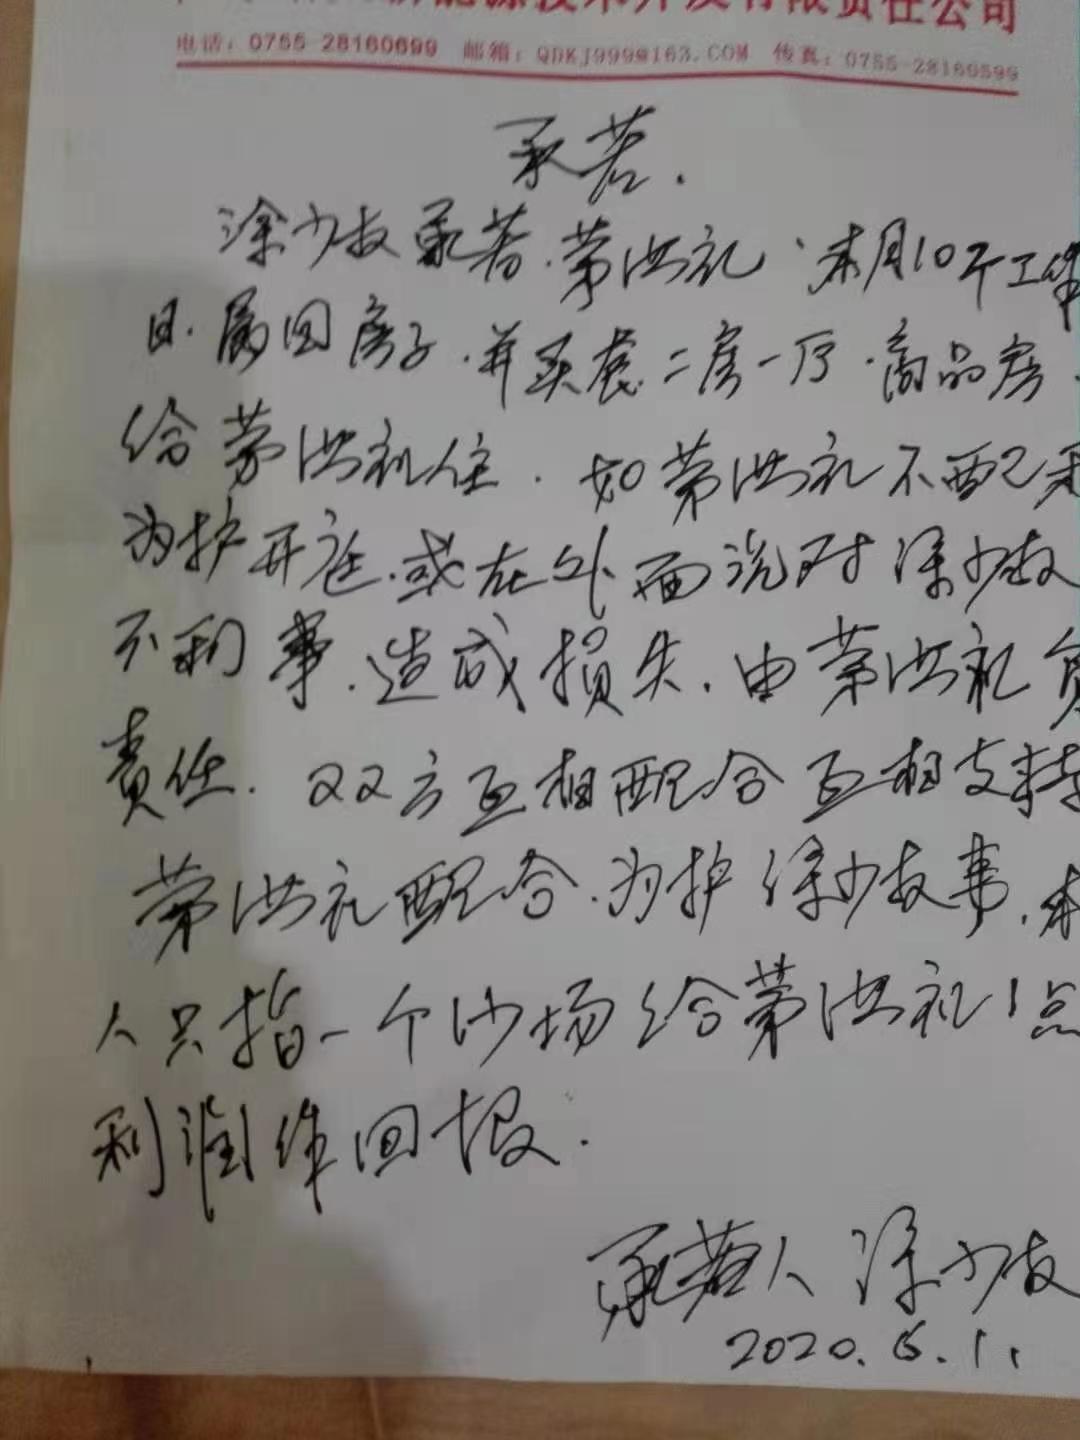 新能源技术开发有限责任公司
电话：0755-28160699 邮箱：QDKJ999@163.COM 传真：0755-28160599
承若.
涂少友承若.茅洪礼、本月10个工作
日.属回房子.并买套二房一厅.商品房.
给茅洪礼住.如茅洪礼不配合
为护开庭.或在外面说对涂少友
不利事.造成损失.由茅洪礼负
责任.双方互相配合互相支持
茅洪礼配合.为护涂少友事.本
人只指一个沙场给茅洪礼1点
利润作回报.
承若人 涂少友
2020.6.1.